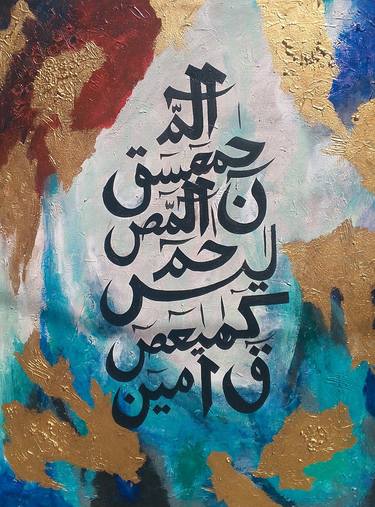 الٓمّٓ
حمٓعٓسٓقٓ
نٓ الٓمّٓصٓ
حٰمٓ
يٰسٓ
كٓهٰيٰعٓصٓ
قٓ اٰمين